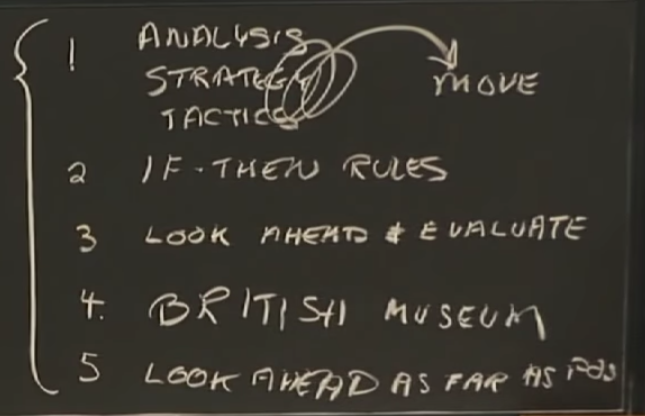 1 ANALYSIS
STRATEGY MOVE
TACTICS
2 IF-THEN RULES
3 LOOK AHEAD & EVALUATE
4. BRITISH MUSEUM
5 LOOK AHEAD AS FAR AS POS